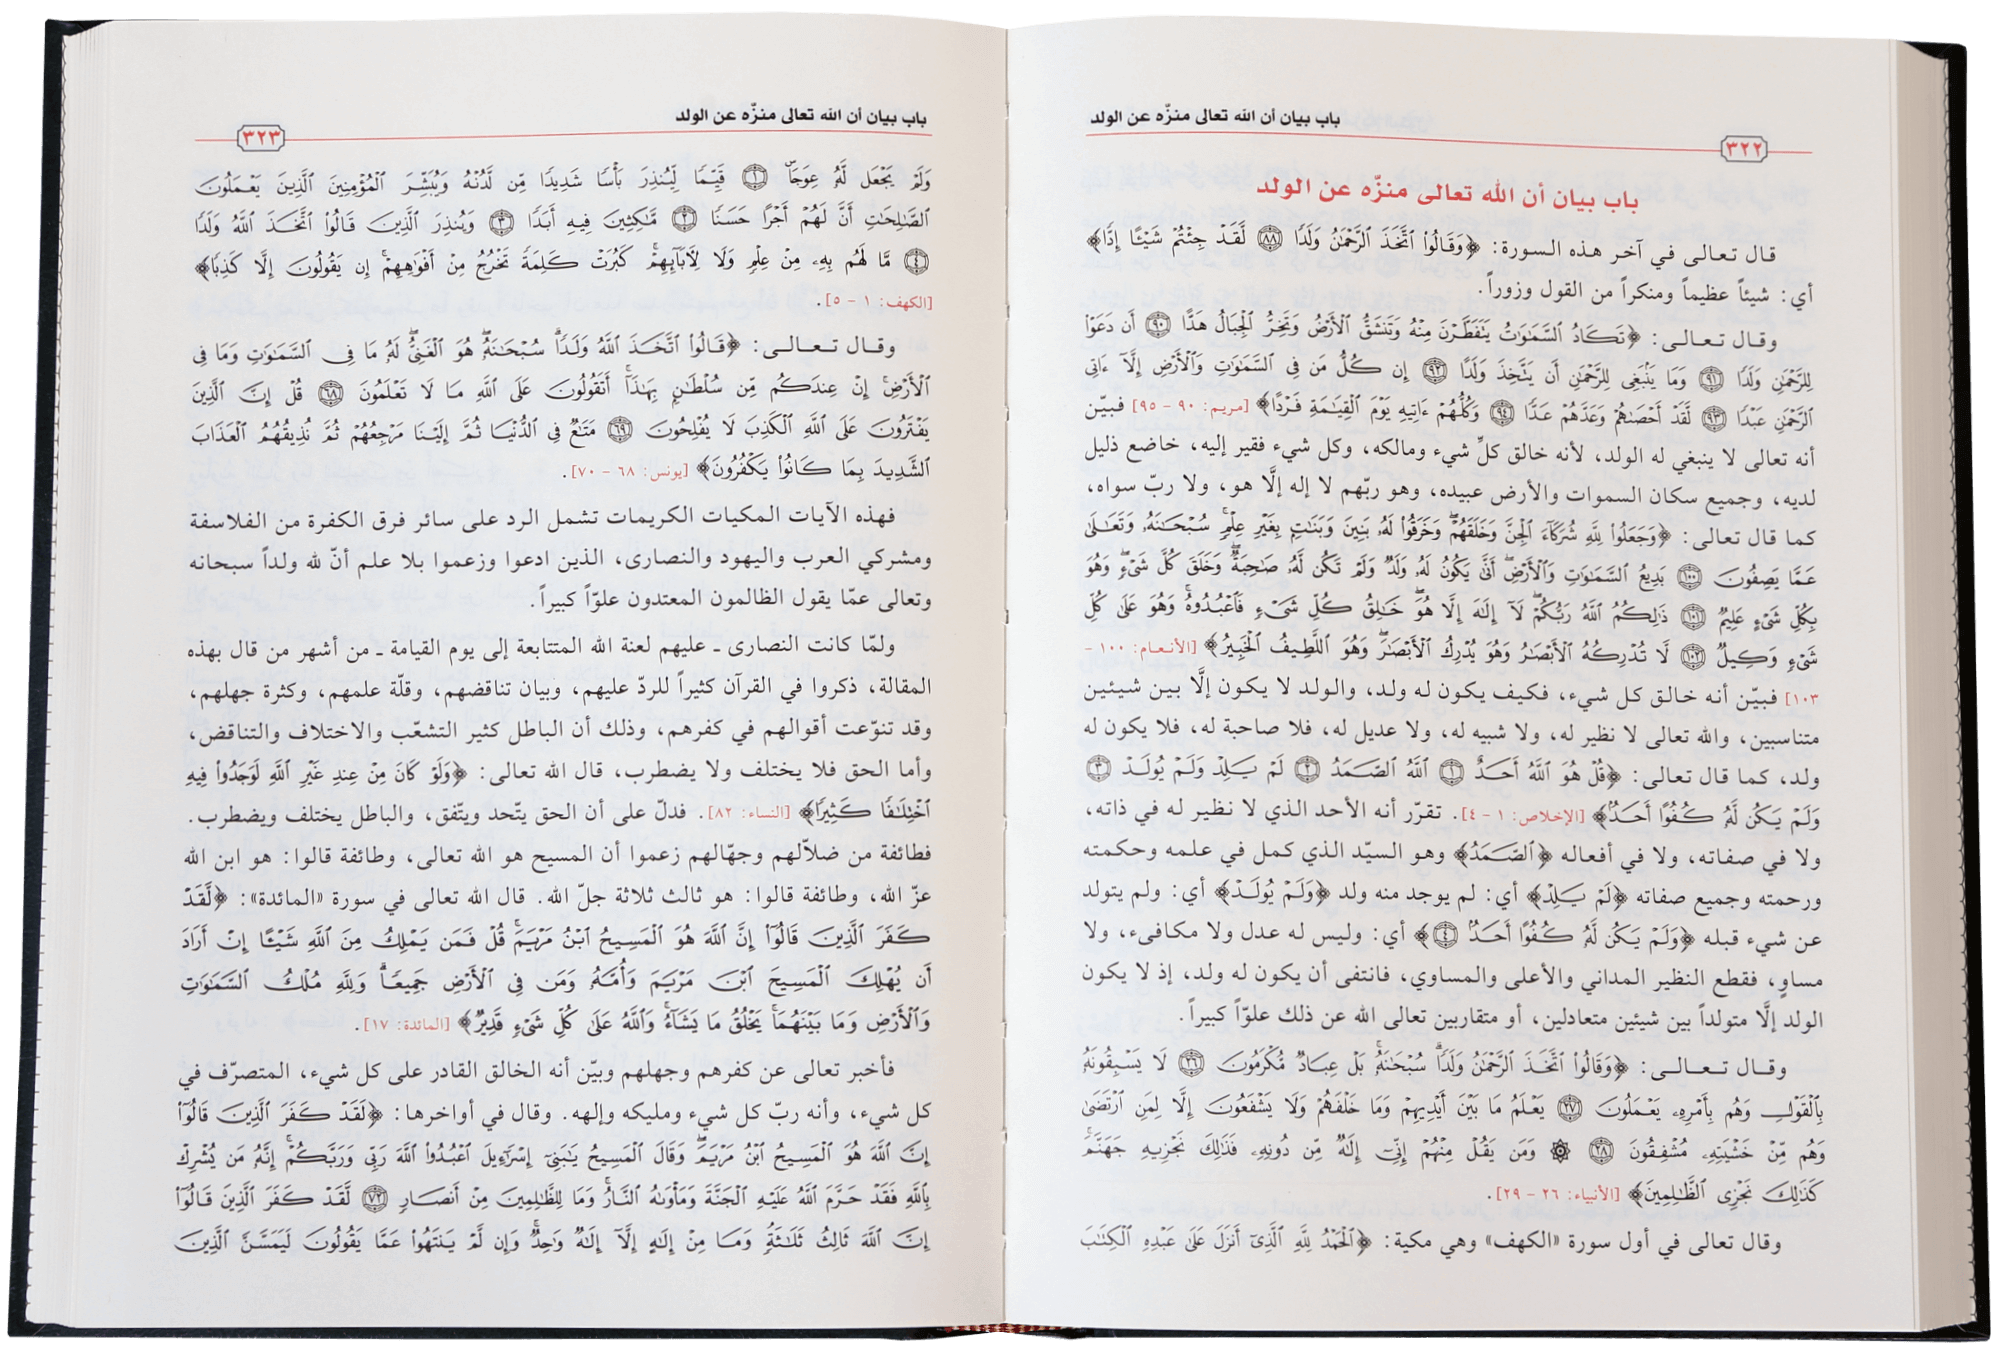 باب بيان أن الله تعالى منزّه عن الولد
٣٢٢
باب بيان أن الله تعالى منزّه عن الولد
قال تعالى في آخر هذه السورة: ﴿وَقَالُوا۟ ٱتَّخَذَ ٱلرَّحْمَـٰنُ وَلَدًا ٨٨ لَّقَدْ جِئْتُمْ شَيْـًٔا إِدًّا﴾
أي: شيئاً عظيماً ومنكراً من القول وزوراً.
وقال تعالى: ﴿تَكَادُ ٱلسَّمَـٰوَٰتُ يَتَفَطَّرْنَ مِنْهُ وَتَنشَقُّ ٱلْأَرْضُ وَتَخِرُّ ٱلْجِبَالُ هَدًّا ٩٠ أَن دَعَوْا۟
لِلرَّحْمَـٰنِ وَلَدًا ٩١ وَمَا يَنۢبَغِى لِلرَّحْمَـٰنِ أَن يَتَّخِذَ وَلَدًا ٩٢ إِن كُلُّ مَن فِى ٱلسَّمَـٰوَٰتِ وَٱلْأَرْضِ إِلَّآ ءَاتِى
ٱلرَّحْمَـٰنِ عَبْدًا ٩٣ لَّقَدْ أَحْصَىٰهُمْ وَعَدَّهُمْ عَدًّا ٩٤ وَكُلُّهُمْ ءَاتِيهِ يَوْمَ ٱلْقِيَـٰمَةِ فَرْدًا﴾ [مريم: ٩٠ - ٩٥] فبيّن
أنه تعالى لا ينبغي له الولد، لأنه خالق كلِّ شيء ومالكه، وكل شيء فقير إليه، خاضع ذليل
لديه، وجميع سكان السموات والأرض عبيده، وهو ربّهم لا إله إلَّا هو، ولا ربّ سواه،
كما قال تعالى: ﴿وَجَعَلُوا۟ لِلَّهِ شُرَكَآءَ ٱلْجِنَّ وَخَلَقَهُمْ ۖ وَخَرَقُوا۟ لَهُۥ بَنِينَ وَبَنَـٰتٍۭ بِغَيْرِ عِلْمٍ ۚ سُبْحَـٰنَهُۥ وَتَعَـٰلَىٰ
عَمَّا يَصِفُونَ ١٠٠ بَدِيعُ ٱلسَّمَـٰوَٰتِ وَٱلْأَرْضِ ۖ أَنَّىٰ يَكُونُ لَهُۥ وَلَدٌ وَلَمْ تَكُن لَّهُۥ صَـٰحِبَةٌ ۖ وَخَلَقَ كُلَّ شَىْءٍ ۖ وَهُوَ
بِكُلِّ شَىْءٍ عَلِيمٌ ١٠١ ذَٰلِكُمُ ٱللَّهُ رَبُّكُمْ ۖ لَآ إِلَـٰهَ إِلَّا هُوَ ۖ خَـٰلِقُ كُلِّ شَىْءٍ فَٱعْبُدُوهُ ۚ وَهُوَ عَلَىٰ كُلِّ
شَىْءٍ وَكِيلٌ ١٠٢ لَّا تُدْرِكُهُ ٱلْأَبْصَـٰرُ وَهُوَ يُدْرِكُ ٱلْأَبْصَـٰرَ ۖ وَهُوَ ٱللَّطِيفُ ٱلْخَبِيرُ﴾ [الأنعام: ١٠٠ -
١٠٣] فبيّن أنه خالق كل شيء، فكيف يكون له ولد، والولد لا يكون إلَّا بين شيئين
متناسبين، والله تعالى لا نظير له، ولا شبيه له، ولا عديل له، فلا صاحبة له، فلا يكون له
ولد، كما قال تعالى: ﴿قُلْ هُوَ ٱللَّهُ أَحَدٌ ١ ٱللَّهُ ٱلصَّمَدُ ٢ لَمْ يَلِدْ وَلَمْ يُولَدْ ٣
وَلَمْ يَكُن لَّهُۥ كُفُوًا أَحَدٌۢ﴾ [الإخلاص: ١ - ٤]. تقرّر أنه الأحد الذي لا نظير له في ذاته،
ولا في صفاته، ولا في أفعاله ﴿ٱلصَّمَدُ﴾ وهو السيّد الذي كمل في علمه وحكمته
ورحمته وجميع صفاته ﴿لَمْ يَلِدْ﴾ أي: لم يوجد منه ولد ﴿وَلَمْ يُولَدْ﴾ أي: ولم يتولد
عن شيء قبله ﴿وَلَمْ يَكُن لَّهُۥ كُفُوًا أَحَدٌۢ ٤﴾ أي: وليس له عدل ولا مكافىء، ولا
مساوٍ، فقطع النظير المداني والأعلى والمساوي، فانتفى أن يكون له ولد، إذ لا يكون
الولد إلَّا متولداً بين شيئين متعادلين، أو متقاربين تعالى الله عن ذلك علوّاً كبيراً.
وقال تعالى: ﴿وَقَالُوا۟ ٱتَّخَذَ ٱلرَّحْمَـٰنُ وَلَدًا ۗ سُبْحَـٰنَهُۥ ۚ بَلْ عِبَادٌ مُّكْرَمُونَ ٢٦ لَا يَسْبِقُونَهُۥ
بِٱلْقَوْلِ وَهُم بِأَمْرِهِۦ يَعْمَلُونَ ٢٧ يَعْلَمُ مَا بَيْنَ أَيْدِيهِمْ وَمَا خَلْفَهُمْ وَلَا يَشْفَعُونَ إِلَّا لِمَنِ ٱرْتَضَىٰ
وَهُم مِّنْ خَشْيَتِهِۦ مُشْفِقُونَ ٢٨ ۞ وَمَن يَقُلْ مِنْهُمْ إِنِّىٓ إِلَـٰهٌ مِّن دُونِهِۦ فَذَٰلِكَ نَجْزِيهِ جَهَنَّمَ ۚ
كَذَٰلِكَ نَجْزِى ٱلظَّـٰلِمِينَ﴾ [الأنبياء: ٢٦ - ٢٩].
وقال تعالى في أول سورة «الكهف» وهي مكية: ﴿ٱلْحَمْدُ لِلَّهِ ٱلَّذِىٓ أَنزَلَ عَلَىٰ عَبْدِهِ ٱلْكِتَـٰبَ
باب بيان أن الله تعالى منزّه عن الولد
٣٢٣
وَلَمْ يَجْعَل لَّهُۥ عِوَجَا ۜ ١ قَيِّمًا لِّيُنذِرَ بَأْسًا شَدِيدًا مِّن لَّدُنْهُ وَيُبَشِّرَ ٱلْمُؤْمِنِينَ ٱلَّذِينَ يَعْمَلُونَ
ٱلصَّـٰلِحَـٰتِ أَنَّ لَهُمْ أَجْرًا حَسَنًا ٢ مَّـٰكِثِينَ فِيهِ أَبَدًا ٣ وَيُنذِرَ ٱلَّذِينَ قَالُوا۟ ٱتَّخَذَ ٱللَّهُ وَلَدًا
٤ مَّا لَهُم بِهِۦ مِنْ عِلْمٍ وَلَا لِـَٔابَآئِهِمْ ۚ كَبُرَتْ كَلِمَةً تَخْرُجُ مِنْ أَفْوَٰهِهِمْ ۚ إِن يَقُولُونَ إِلَّا كَذِبًا﴾
[الكهف: ١ - ٥].
وقال تعالى: ﴿قَالُوا۟ ٱتَّخَذَ ٱللَّهُ وَلَدًا ۗ سُبْحَـٰنَهُۥ ۖ هُوَ ٱلْغَنِىُّ ۖ لَهُۥ مَا فِى ٱلسَّمَـٰوَٰتِ وَمَا فِى
ٱلْأَرْضِ ۚ إِنْ عِندَكُم مِّن سُلْطَـٰنٍۭ بِهَـٰذَآ ۚ أَتَقُولُونَ عَلَى ٱللَّهِ مَا لَا تَعْلَمُونَ ٦٨ قُلْ إِنَّ ٱلَّذِينَ
يَفْتَرُونَ عَلَى ٱللَّهِ ٱلْكَذِبَ لَا يُفْلِحُونَ ٦٩ مَتَـٰعٌ فِى ٱلدُّنْيَا ثُمَّ إِلَيْنَا مَرْجِعُهُمْ ثُمَّ نُذِيقُهُمُ ٱلْعَذَابَ
ٱلشَّدِيدَ بِمَا كَانُوا۟ يَكْفُرُونَ﴾ [يونس: ٦٨ - ٧٠].
فهذه الآيات المكيات الكريمات تشمل الرد على سائر فرق الكفرة من الفلاسفة
ومشركي العرب واليهود والنصارى، الذين ادعوا وزعموا بلا علم أنّ لله ولداً سبحانه
وتعالى عمّا يقول الظالمون المعتدون علوّاً كبيراً.
ولمّا كانت النصارى ـ عليهم لعنة الله المتتابعة إلى يوم القيامة ـ من أشهر من قال بهذه
المقالة، ذكروا في القرآن كثيراً للردّ عليهم، وبيان تناقضهم، وقلّة علمهم، وكثرة جهلهم،
وقد تنوّعت أقوالهم في كفرهم، وذلك أن الباطل كثير التشعّب والاختلاف والتناقض،
وأما الحق فلا يختلف ولا يضطرب، قال الله تعالى: ﴿وَلَوْ كَانَ مِنْ عِندِ غَيْرِ ٱللَّهِ لَوَجَدُوا۟ فِيهِ
ٱخْتِلَـٰفًا كَثِيرًا﴾ [النساء: ٨٢]. فدلّ على أن الحق يتّحد ويتّفق، والباطل يختلف ويضطرب.
فطائفة من ضلاّلهم وجهّالهم زعموا أن المسيح هو الله تعالى، وطائفة قالوا: هو ابن الله
عزّ الله، وطائفة قالوا: هو ثالث ثلاثة جلّ الله. قال الله تعالى في سورة «المائدة»: ﴿لَّقَدْ
كَفَرَ ٱلَّذِينَ قَالُوٓا۟ إِنَّ ٱللَّهَ هُوَ ٱلْمَسِيحُ ٱبْنُ مَرْيَمَ ۚ قُلْ فَمَن يَمْلِكُ مِنَ ٱللَّهِ شَيْـًٔا إِنْ أَرَادَ
أَن يُهْلِكَ ٱلْمَسِيحَ ٱبْنَ مَرْيَمَ وَأُمَّهُۥ وَمَن فِى ٱلْأَرْضِ جَمِيعًا ۗ وَلِلَّهِ مُلْكُ ٱلسَّمَـٰوَٰتِ
وَٱلْأَرْضِ وَمَا بَيْنَهُمَا ۚ يَخْلُقُ مَا يَشَآءُ ۚ وَٱللَّهُ عَلَىٰ كُلِّ شَىْءٍ قَدِيرٌ﴾ [المائدة: ١٧].
فأخبر تعالى عن كفرهم وجهلهم وبيّن أنه الخالق القادر على كل شيء، المتصرّف في
كل شيء، وأنه ربّ كل شيء ومليكه وإلهه. وقال في أواخرها: ﴿لَقَدْ كَفَرَ ٱلَّذِينَ قَالُوٓا۟
إِنَّ ٱللَّهَ هُوَ ٱلْمَسِيحُ ٱبْنُ مَرْيَمَ ۖ وَقَالَ ٱلْمَسِيحُ يَـٰبَنِىٓ إِسْرَٰٓءِيلَ ٱعْبُدُوا۟ ٱللَّهَ رَبِّى وَرَبَّكُمْ ۖ إِنَّهُۥ مَن يُشْرِكْ
بِٱللَّهِ فَقَدْ حَرَّمَ ٱللَّهُ عَلَيْهِ ٱلْجَنَّةَ وَمَأْوَىٰهُ ٱلنَّارُ ۖ وَمَا لِلظَّـٰلِمِينَ مِنْ أَنصَارٍ ٧٢ لَّقَدْ كَفَرَ ٱلَّذِينَ قَالُوٓا۟
إِنَّ ٱللَّهَ ثَالِثُ ثَلَـٰثَةٍ ۘ وَمَا مِنْ إِلَـٰهٍ إِلَّآ إِلَـٰهٌ وَٰحِدٌ ۚ وَإِن لَّمْ يَنتَهُوا۟ عَمَّا يَقُولُونَ لَيَمَسَّنَّ ٱلَّذِينَ